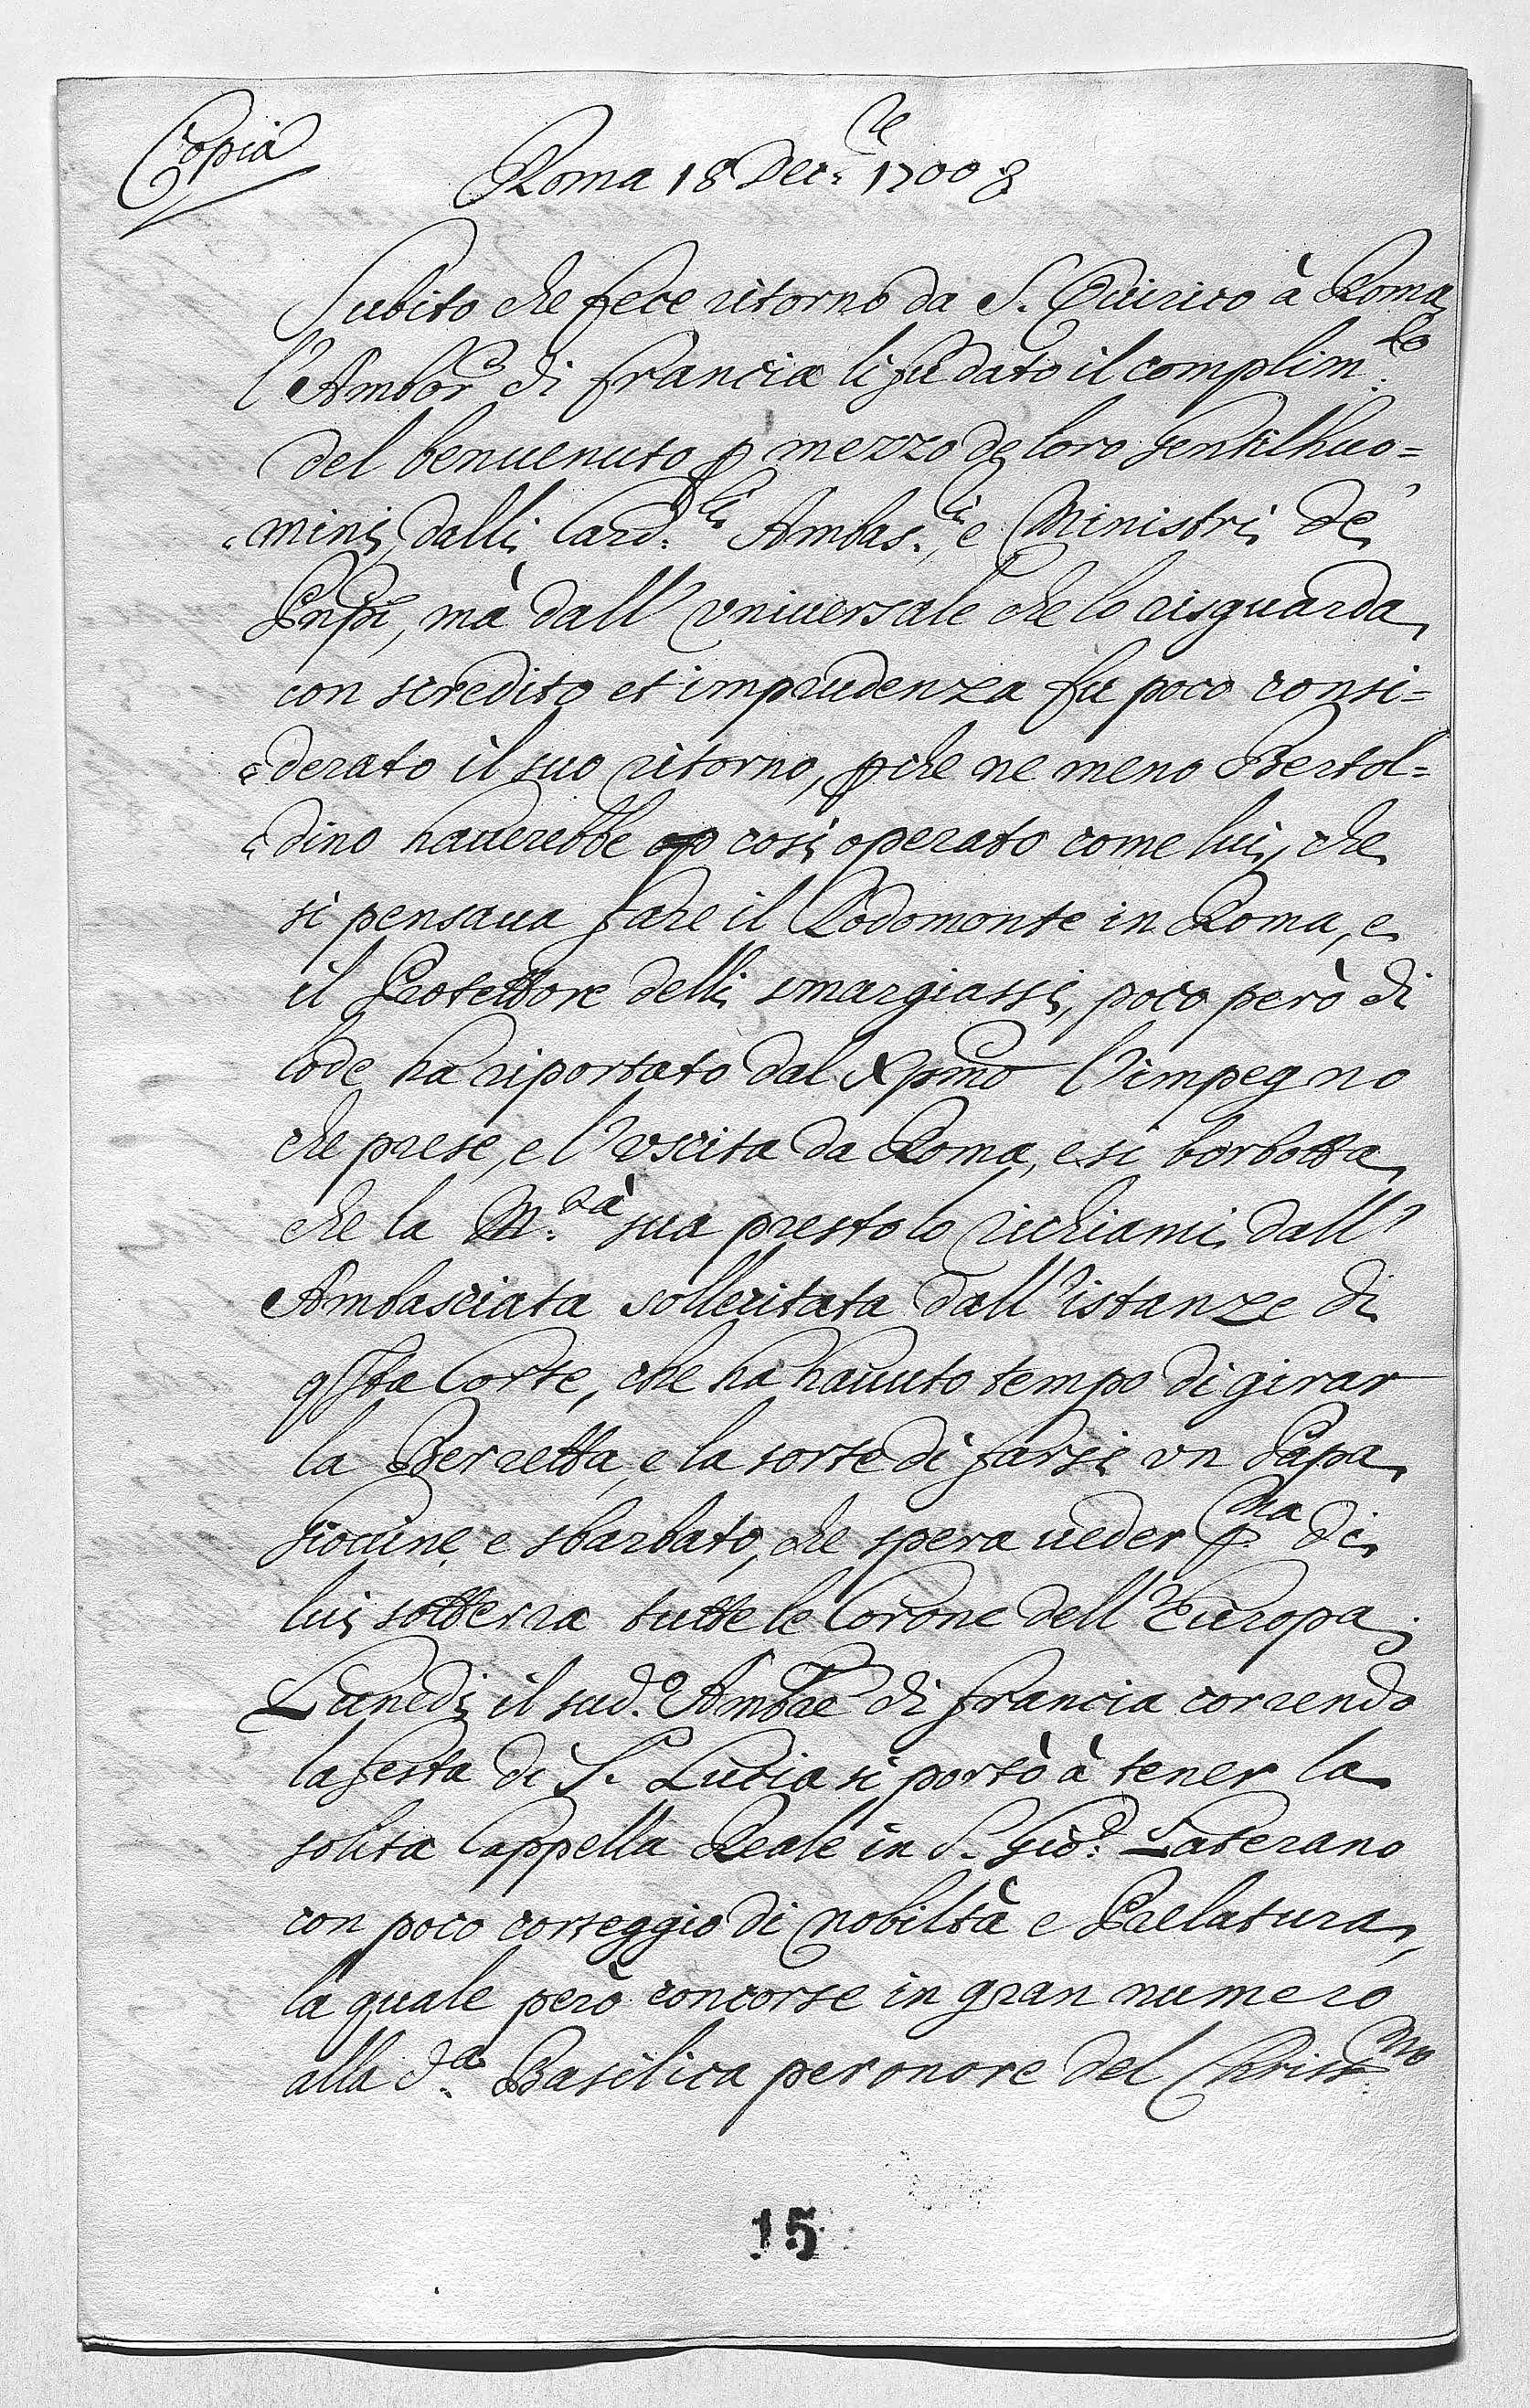 Copia
Roma 18 Dec.re 1700
Subito che fece ritorno da S. Quirico à Roma
l'Ambor di Francia li fù dato il complim.to
del benuenuto p mezzo de loro gentilhuo=
=mini dalli Card.li Ambas.ri, e Ministri de
Pnpi, mà dall'vniuersale che lo risguarda
con scredito et imprudenza fu poco consi=
=derato il suo ritorno, pche ne meno Bertol=
=dino hauerebbe così operato come lui, che
si pensaua fare il Rodomonte in Roma, e
il Protettore delli smargiassi, poco però di
lode ha riportato dal Xpmo l'impegno
che prese, e l'vscita da Roma, e si borbotta
che la M.tà sua presto lo richiami dall'
Ambasciata sollecitata dall'istanze di
qsta Corte, che ha hauuto tempo di girar
la Berretta, e la sorte di farsi vn Papa
giouine e sbarbato, che spera ueder pma di
lui sotterra tutte le Corone dell'Europa.
Lunedi il sud.o Ambre di Francia correndo
la festa di S. Lucia si portò à tener la
solita Cappella Reale in S. Gio: Laterano
con poco corteggio di nobiltà e Prelatura,
la quale però concorse in gran numero
alla d.a Basilica per onore del Christmo
15